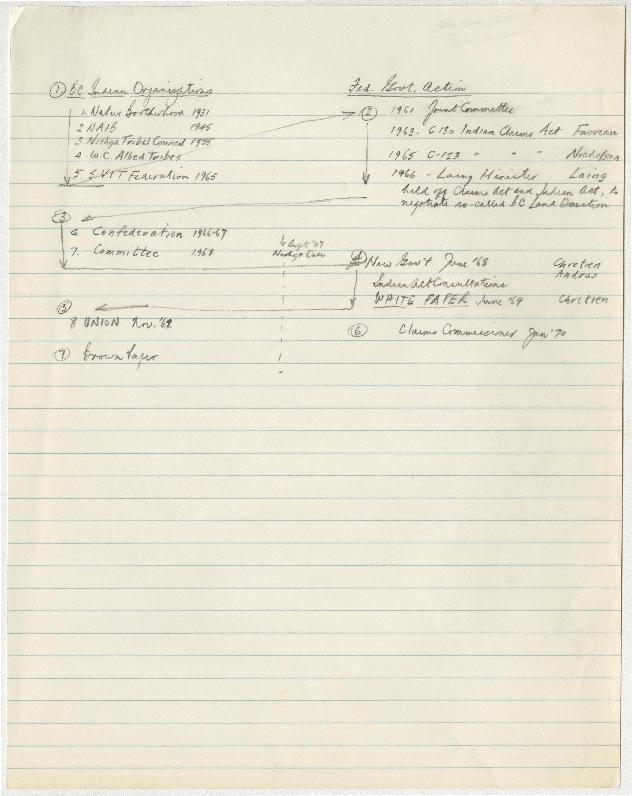 ① BC Indian Organizations
1. Native Brotherhood 1931
2 NAIB 1945
3. Nishga Tribal Council 1955
4. W.C. Allied Tribes
5. S.VIT Federation 1965
Fed. Govt. Action
② 1961 Joint Committee
1963. C-130 Indian Claims Act Favreau
1965 C-123 " " " Nicholson
1966 - Laing Minister Laing
held off Claims Act and Indian Act, to
negotiate so-called BC Land Question
③
6 Confederation 1966-67
7. Committee 1968
Sept '67
Nishga Case
④ New Gov't June '68 Chretien
Andras
Indian Act Consultations
WHITE PAPER June '69 Chretien
⑤
8 UNION Nov. '69
⑥ Claims Commissioner Jan '70
⑦ Brown Paper